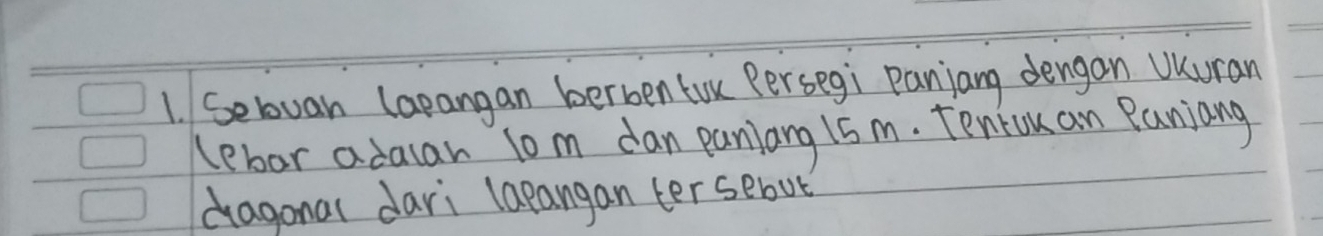 1. Sebuah lapangan berbentuk Persegi Panjang dengan Ukuran
lebar adalah 10 m dan panjang 15 m. Tentukan Panjang
diagonal dari lapangan tersebut